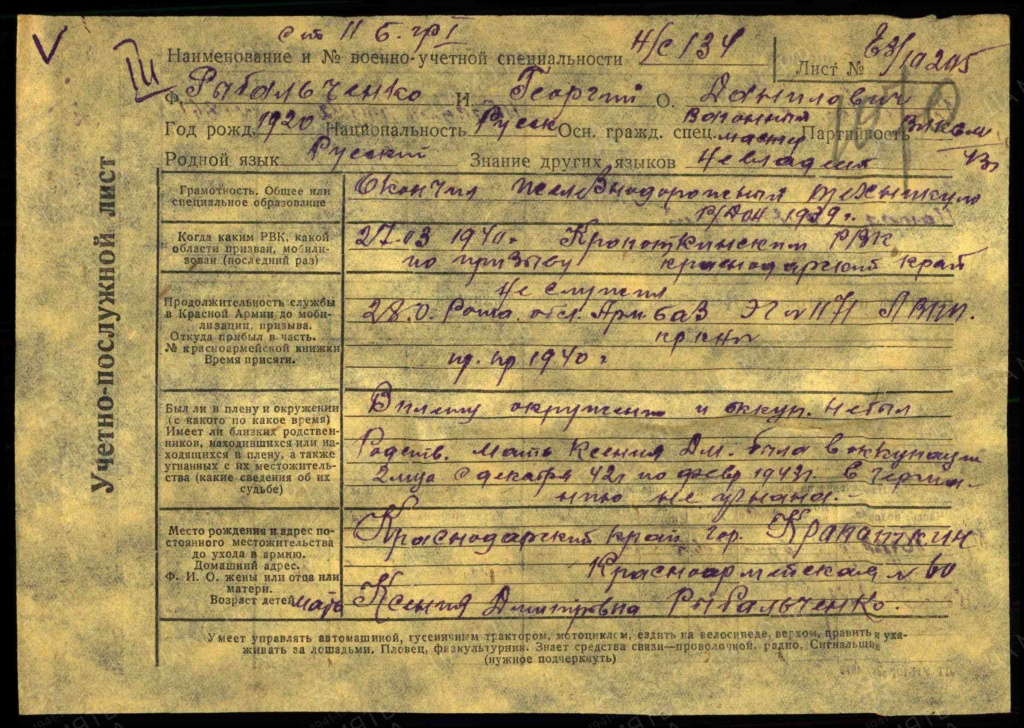 V
III
Наименование и № военно-учетной специальности н/с 134
Лист №
Ф. Рыбальченко И. Георгий О. Данилович
Год рожд. 1920 Национальность Русск Осн. гражд. спец. Вагонный мастер Партийность влксм
Родной язык Русский Знание других языков Не владеет
Учетно-послужной лист
Грамотность. Общее или
специальное образование
Окончил железнодорожный техникум
1939 г.
Когда каким РВК, какой
области призван, мобили-
зован (последний раз)
27.03 1940 г Кропоткинским РВК
по призыву краснодарский край
Продолжительность службы
в Красной Армии до моби-
лизации, призыва.
Откуда прибыл в часть.
№ красноармейской книжки
Время присяги.
не служил
28.0. Рота. ЭГ № 1171
1940 г
Был ли в плену и окружении
(с какого по какое время)
Имеет ли близких родствен-
ников, находившихся или на-
ходящихся в плену, а также
угнанных с их местожитель-
ства (какие сведения об их
судьбе)
В плену окружении и оккуп. не был
Родств. Мать Ксения Дм. была в оккупации
2 м-ца с декабря 42г по февр 1943г. В Герма-
нию не угнана.
Место рождения и адрес по-
стоянного местожительства
до ухода в армию.
Домашний адрес.
Ф. И. О. жены или отца или
матери.
Возраст детей
Краснодарский край гор. Кропоткин
Красноармейская № 60
мать Ксения Дмитревна Рыбальченко.
Умеет управлять автомашиной, гусеничным трактором, мотоциклом, ездить на велосипеде, верхом, править и уха-
живать за лошадьми. Пловец, физкультурник. Знает средства связи—проволочной, радио, Сигнальщик
(нужное подчеркнуть)